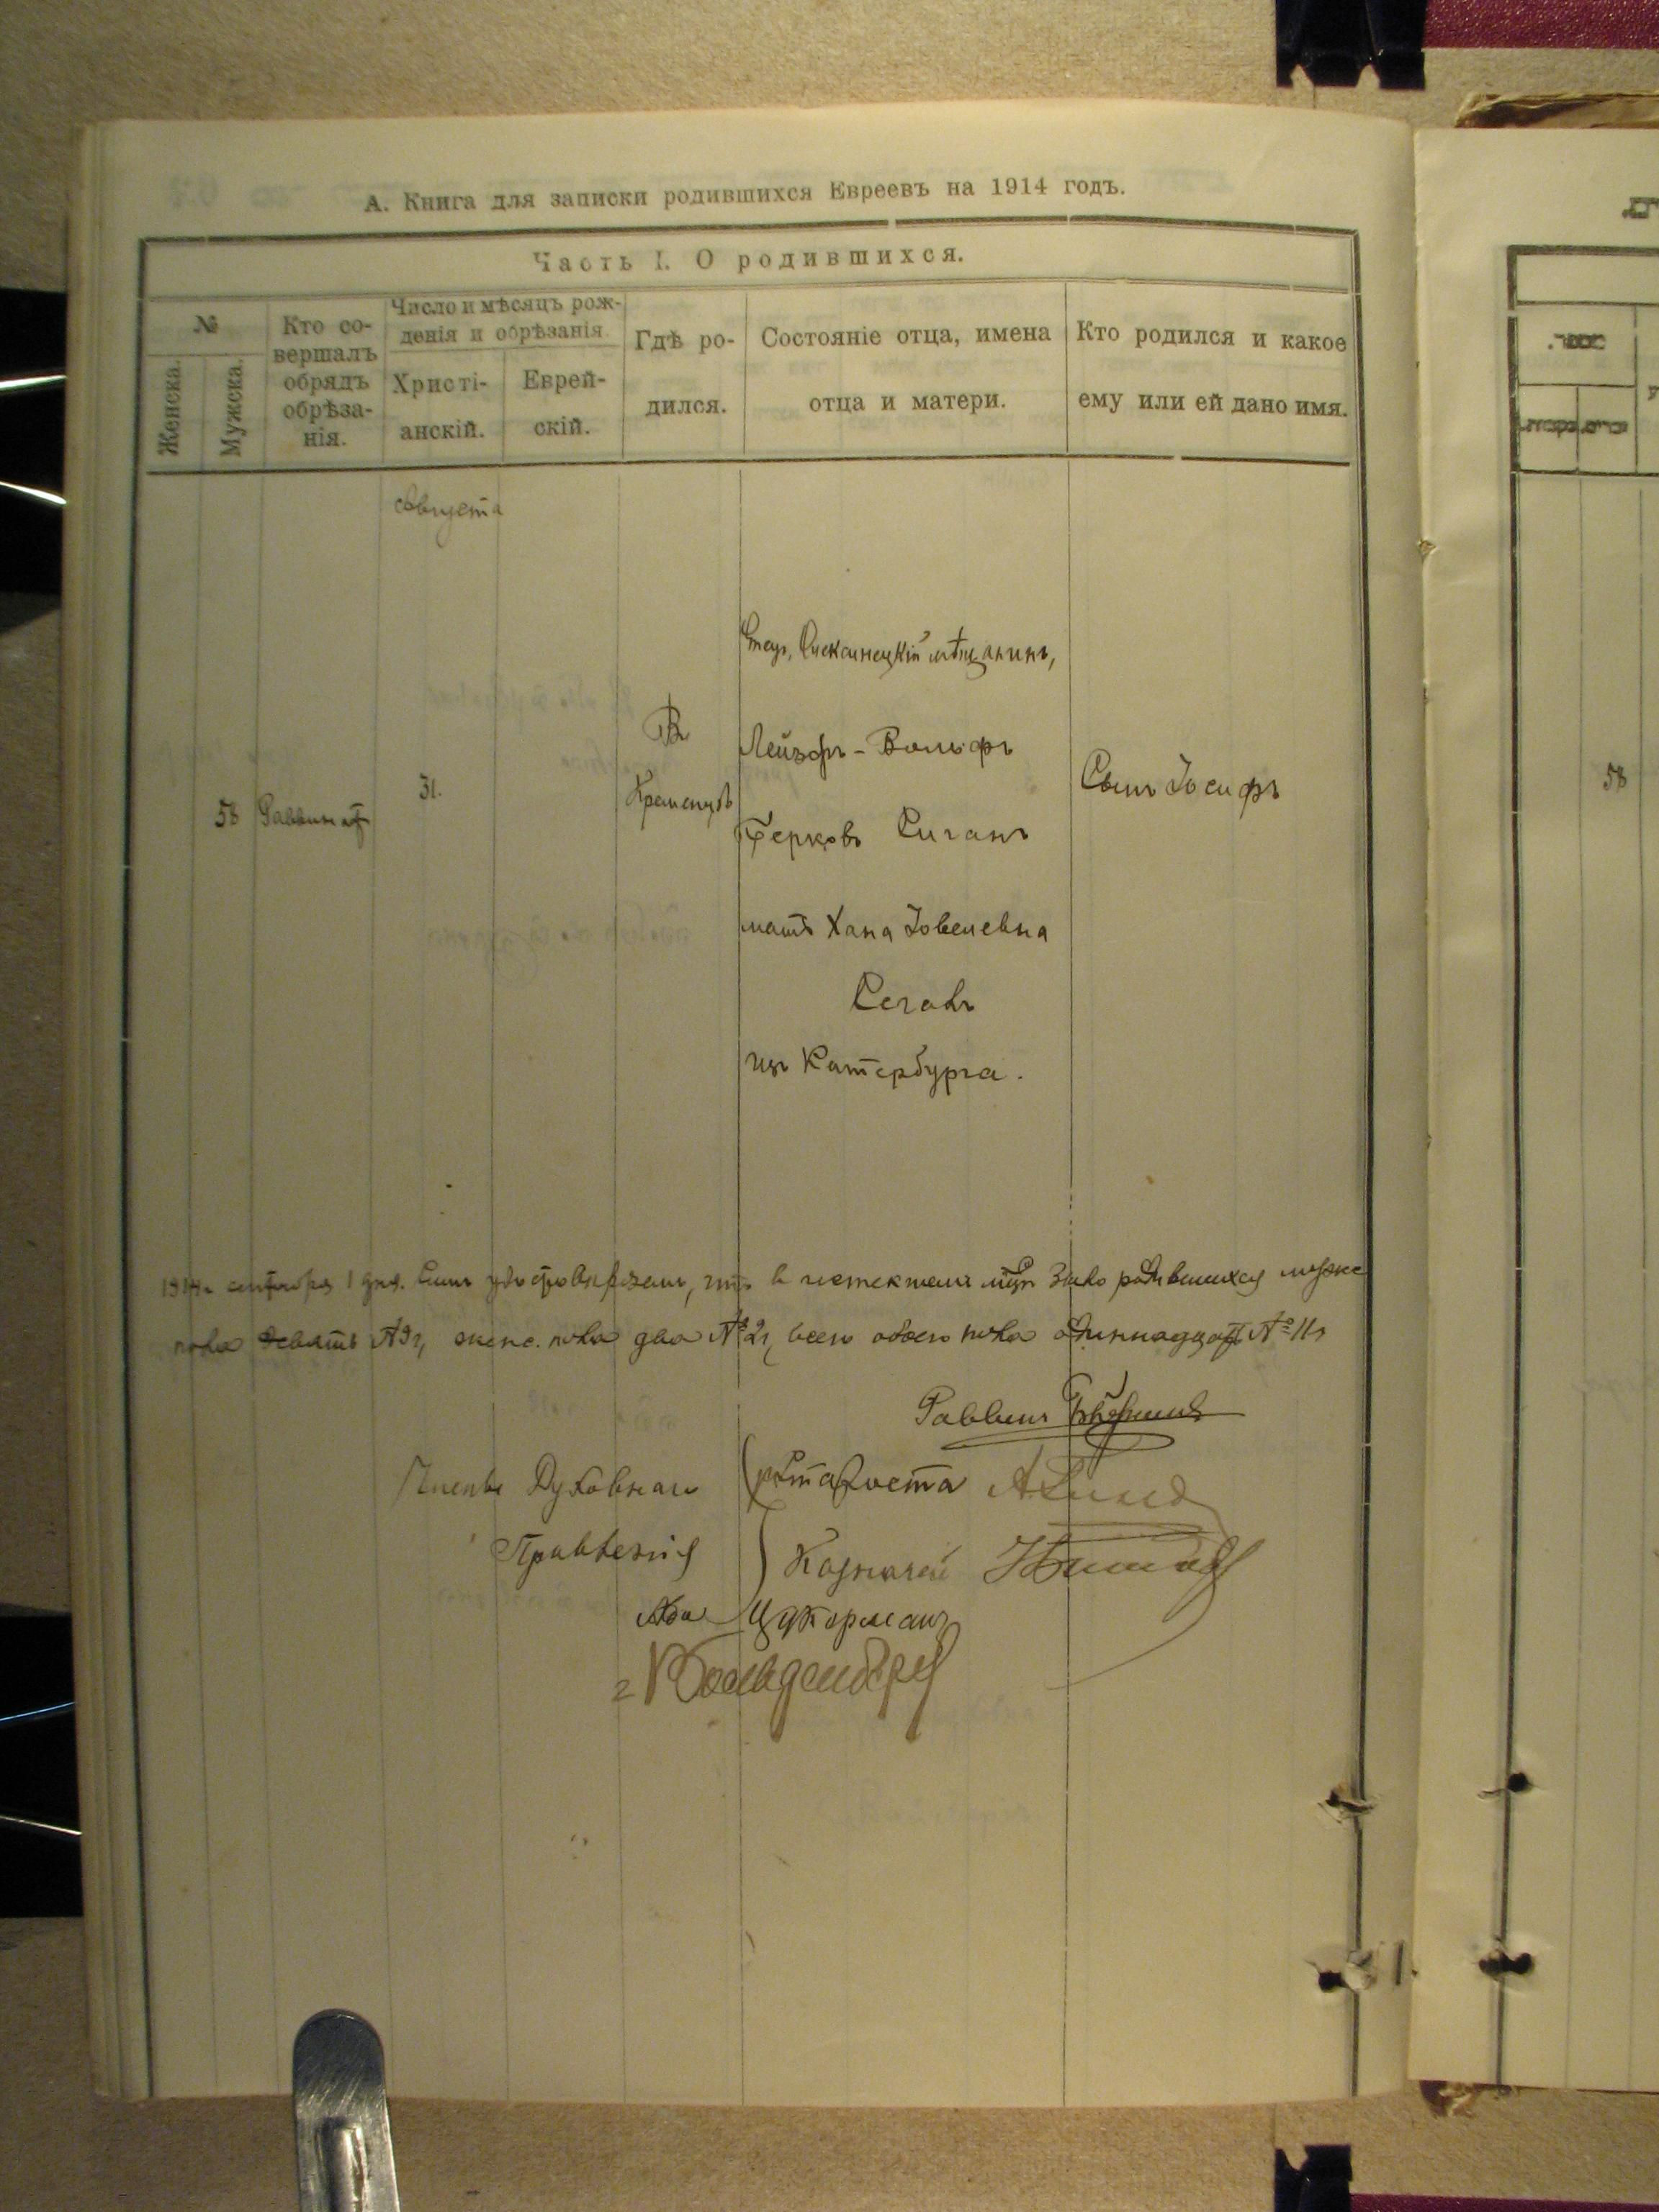 А. Книга для записки родившихся Евреевъ на 1914 годъ.
Часть I. О родившихся.
№
Женска.
Мужска.
Кто совершалъ обрядъ обрѣзанія.
Число и мѣсяцъ рожденія и обрѣзанія
Христіанскій.
Еврейскій.
Гдѣ родился.
Состояніе отца, имена отца и матери.
Кто родился и какое ему или ей дано имя.
Августа
58
Раввинат
31.
Въ
Кременцѣ
мѣщанинъ,
Лейзоръ-Вольфъ
Берковъ Сиганъ
мать Хана Іовелевна
из Катербурга.
Сынъ Іосифъ
1914 г. сентября 1 дня. Симъ удостовѣряемъ, что в истекшемъ родившихся мужс
пола девять №9, женс. пола два №2, всего обоего пола одиннадцать №11
Раввинъ
Члены Духовнаго
Староста
Правленія
Казначей
Цукорманъ
58